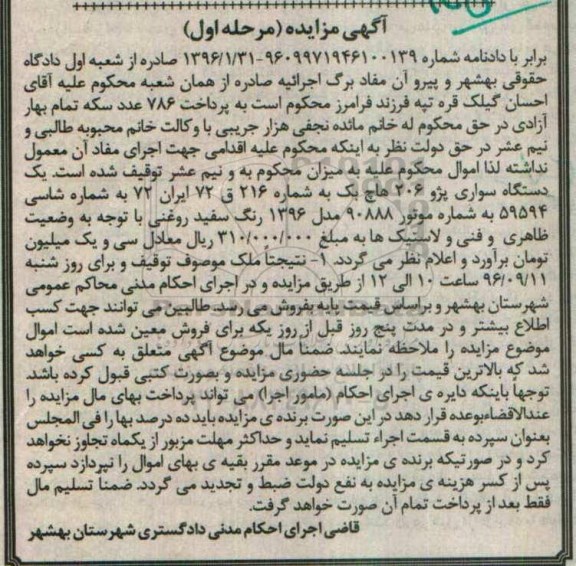 آگهی مزایده (مرحله اول)
برابر با دادنامه شماره ۹۶۰۹۹۷۱۹۴۶۱۰۰۱۳۹-۱۳۹۶/۱/۳۱ صادره از شعبه اول دادگاه
حقوقی بهشهر و پیرو آن مفاد برگ اجرائیه صادره از همان شعبه محکوم علیه آقای
احسان گیلک قره تپه فرزند فرامرز محکوم است به پرداخت ۷۸۶ عدد سکه تمام بهار
آزادی در حق محکوم له خانم مائده نجفی هزار جریبی با وکالت خانم محبوبه طالبی و
نیم عشر در حق دولت نظر به اینکه محکوم علیه اقدامی جهت اجرای مفاد آن معمول
نداشته لذا اموال محکوم علیه به میزان محکوم به و نیم عشر توقیف شده است. یک
دستگاه سواری پژو ۲۰۶ هاچ بک به شماره ۲۱۶ ق ۷۲ ایران ۷۲ به شماره شاسی
۵۹۵۹۴ به شماره موتور ۹۰۸۸۸ مدل ۱۳۹۶ رنگ سفید روغنی با توجه به وضعیت
ظاهری و فنی و لاستیک ها به مبلغ ۳۱۰/۰۰۰/۰۰۰ ریال معادل سی و یک میلیون
تومان برآورد و اعلام نظر می گردد. ۱- نتیجتاً ملک موصوف توقیف و برای روز شنبه
۹۶/۰۹/۱۱ ساعت ۱۰ الی ۱۲ از طریق مزایده و در اجرای احکام مدنی محاکم عمومی
شهرستان بهشهر و براساس قیمت پایه بفروش می رسد. طالبین می توانند جهت کسب
اطلاع بیشتر و در مدت پنج روز قبل از روز یکه برای فروش معین شده است اموال
موضوع مزایده را ملاحظه نمایند. ضمناً مال موضوع آگهی متعلق به کسی خواهد
شد که بالاترین قیمت را در جلسه حضوری مزایده و بصورت کتبی قبول کرده باشد.
توجهاً باینکه دایره ی اجرای احکام (مامور اجرا) می تواند پرداخت بهای مال مزایده را
عندالاقضاء بوعده قرار دهد در این صورت برنده ی مزایده باید ده درصد بها را فی المجلس
بعنوان سپرده به قسمت اجراء تسلیم نماید و حداکثر مهلت مزبور از یکماه تجاوز نخواهد
کرد و در صورتیکه برنده ی مزایده در موعد مقرر بقیه ی بهای اموال را نپردازد سپرده
پس از کسر هزینه ی مزایده به نفع دولت ضبط و تجدید می گردد. ضمناً تسلیم مال
فقط بعد از پرداخت تمام آن صورت خواهد گرفت.
قاضی اجرای احکام مدنی دادگستری شهرستان بهشهر